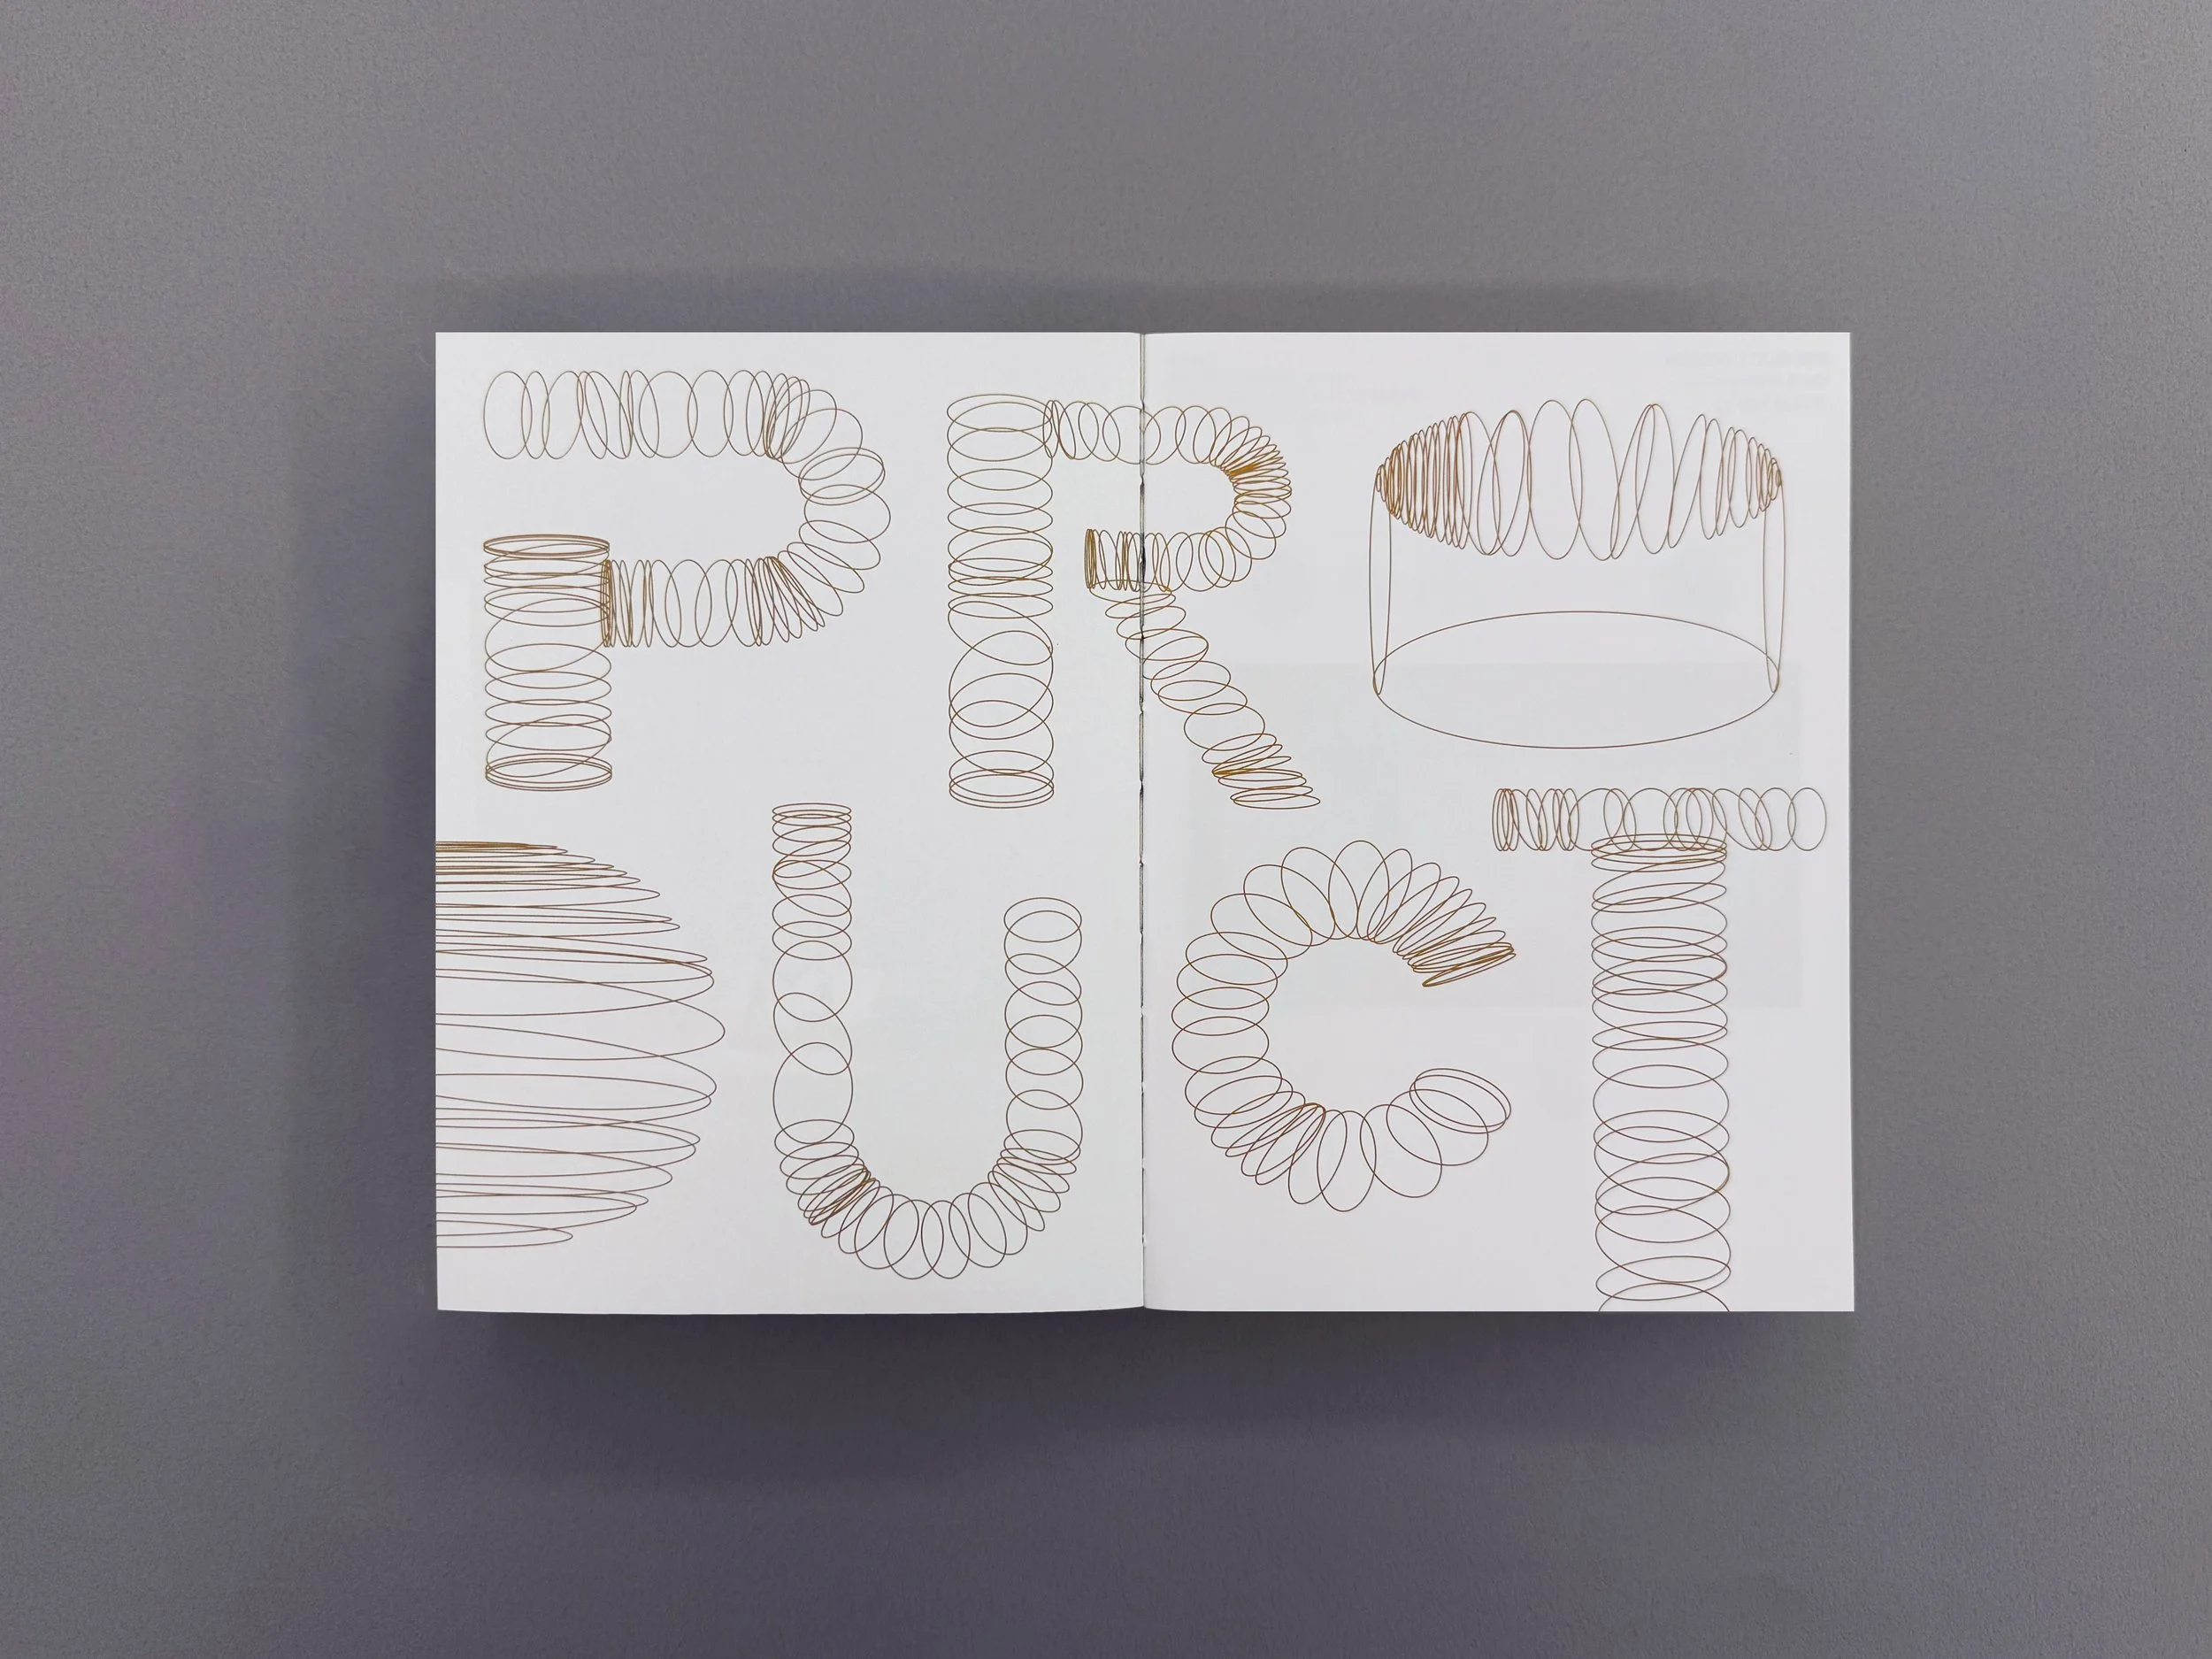 PRO
DUCT